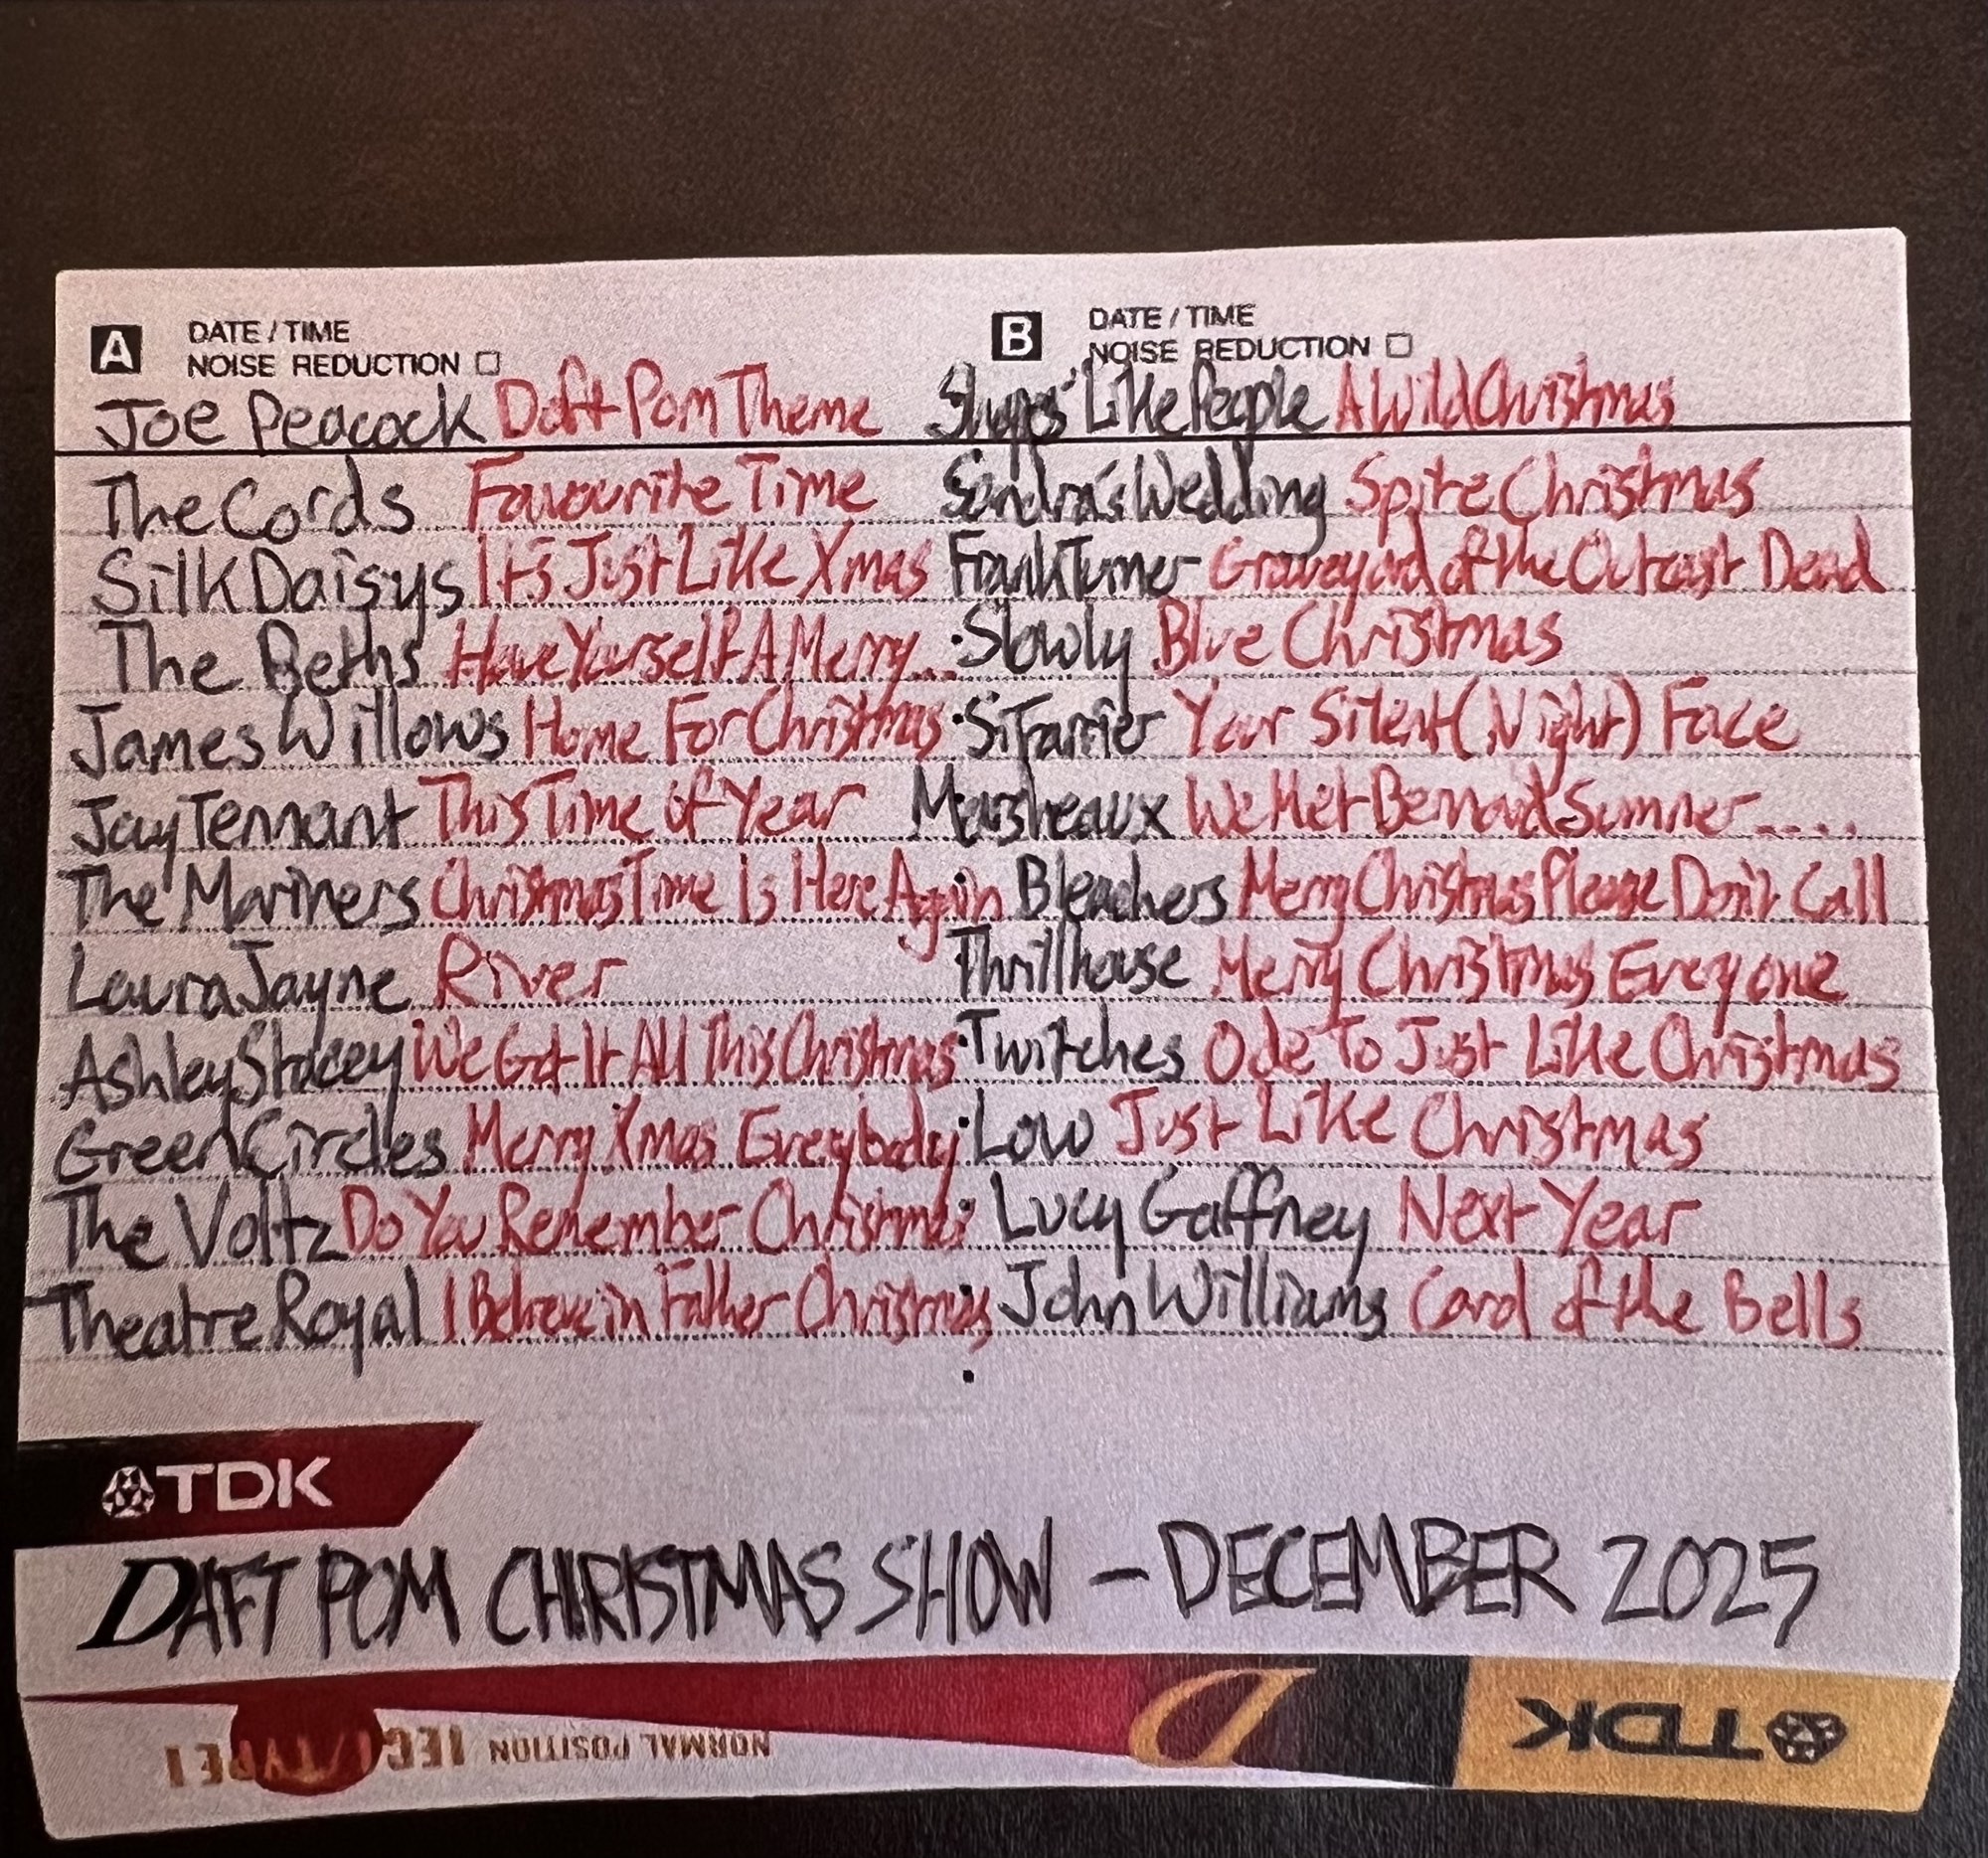 A DATE / TIME
NOISE REDUCTION
Joe Peacock Daft Pom Theme
The Cords Favourite Time
Silk Daisys It's Just Like Xmas
The Beths Have Yourself A Merry...
James Willows Home For Christmas
Jay Tennant This Time Of Year
The Mariners Christmas Time Is Here Again
Laura Jayne River
Ashley Stacey We Got It All This Christmas
Green Circles Merry Xmas Everybody
The Voltz Do You Remember Christmas
Theatre Royal I Believe in Father Christmas
B DATE / TIME
NOISE REDUCTION
Shapes Like People A Wild Christmas
Sandra's Wedding Spite Christmas
Frank Turner Graveyard of the Outcast Dead
Slowly Blue Christmas
Si Farrier Your Silent (Night) Face
Marsheaux We Met Bernard Sumner.....
Bleachers Merry Christmas Please Don't Call
Thrillhouse Merry Christmas Everyone
Twitches Ode To Just Like Christmas
Low Just Like Christmas
Lucy Gaffney Next Year
John Williams Carol of the Bells
TDK
DAFT POM CHRISTMAS SHOW - DECEMBER 2025
TDK
D
NORMAL POSITION IEC I / TYPE I